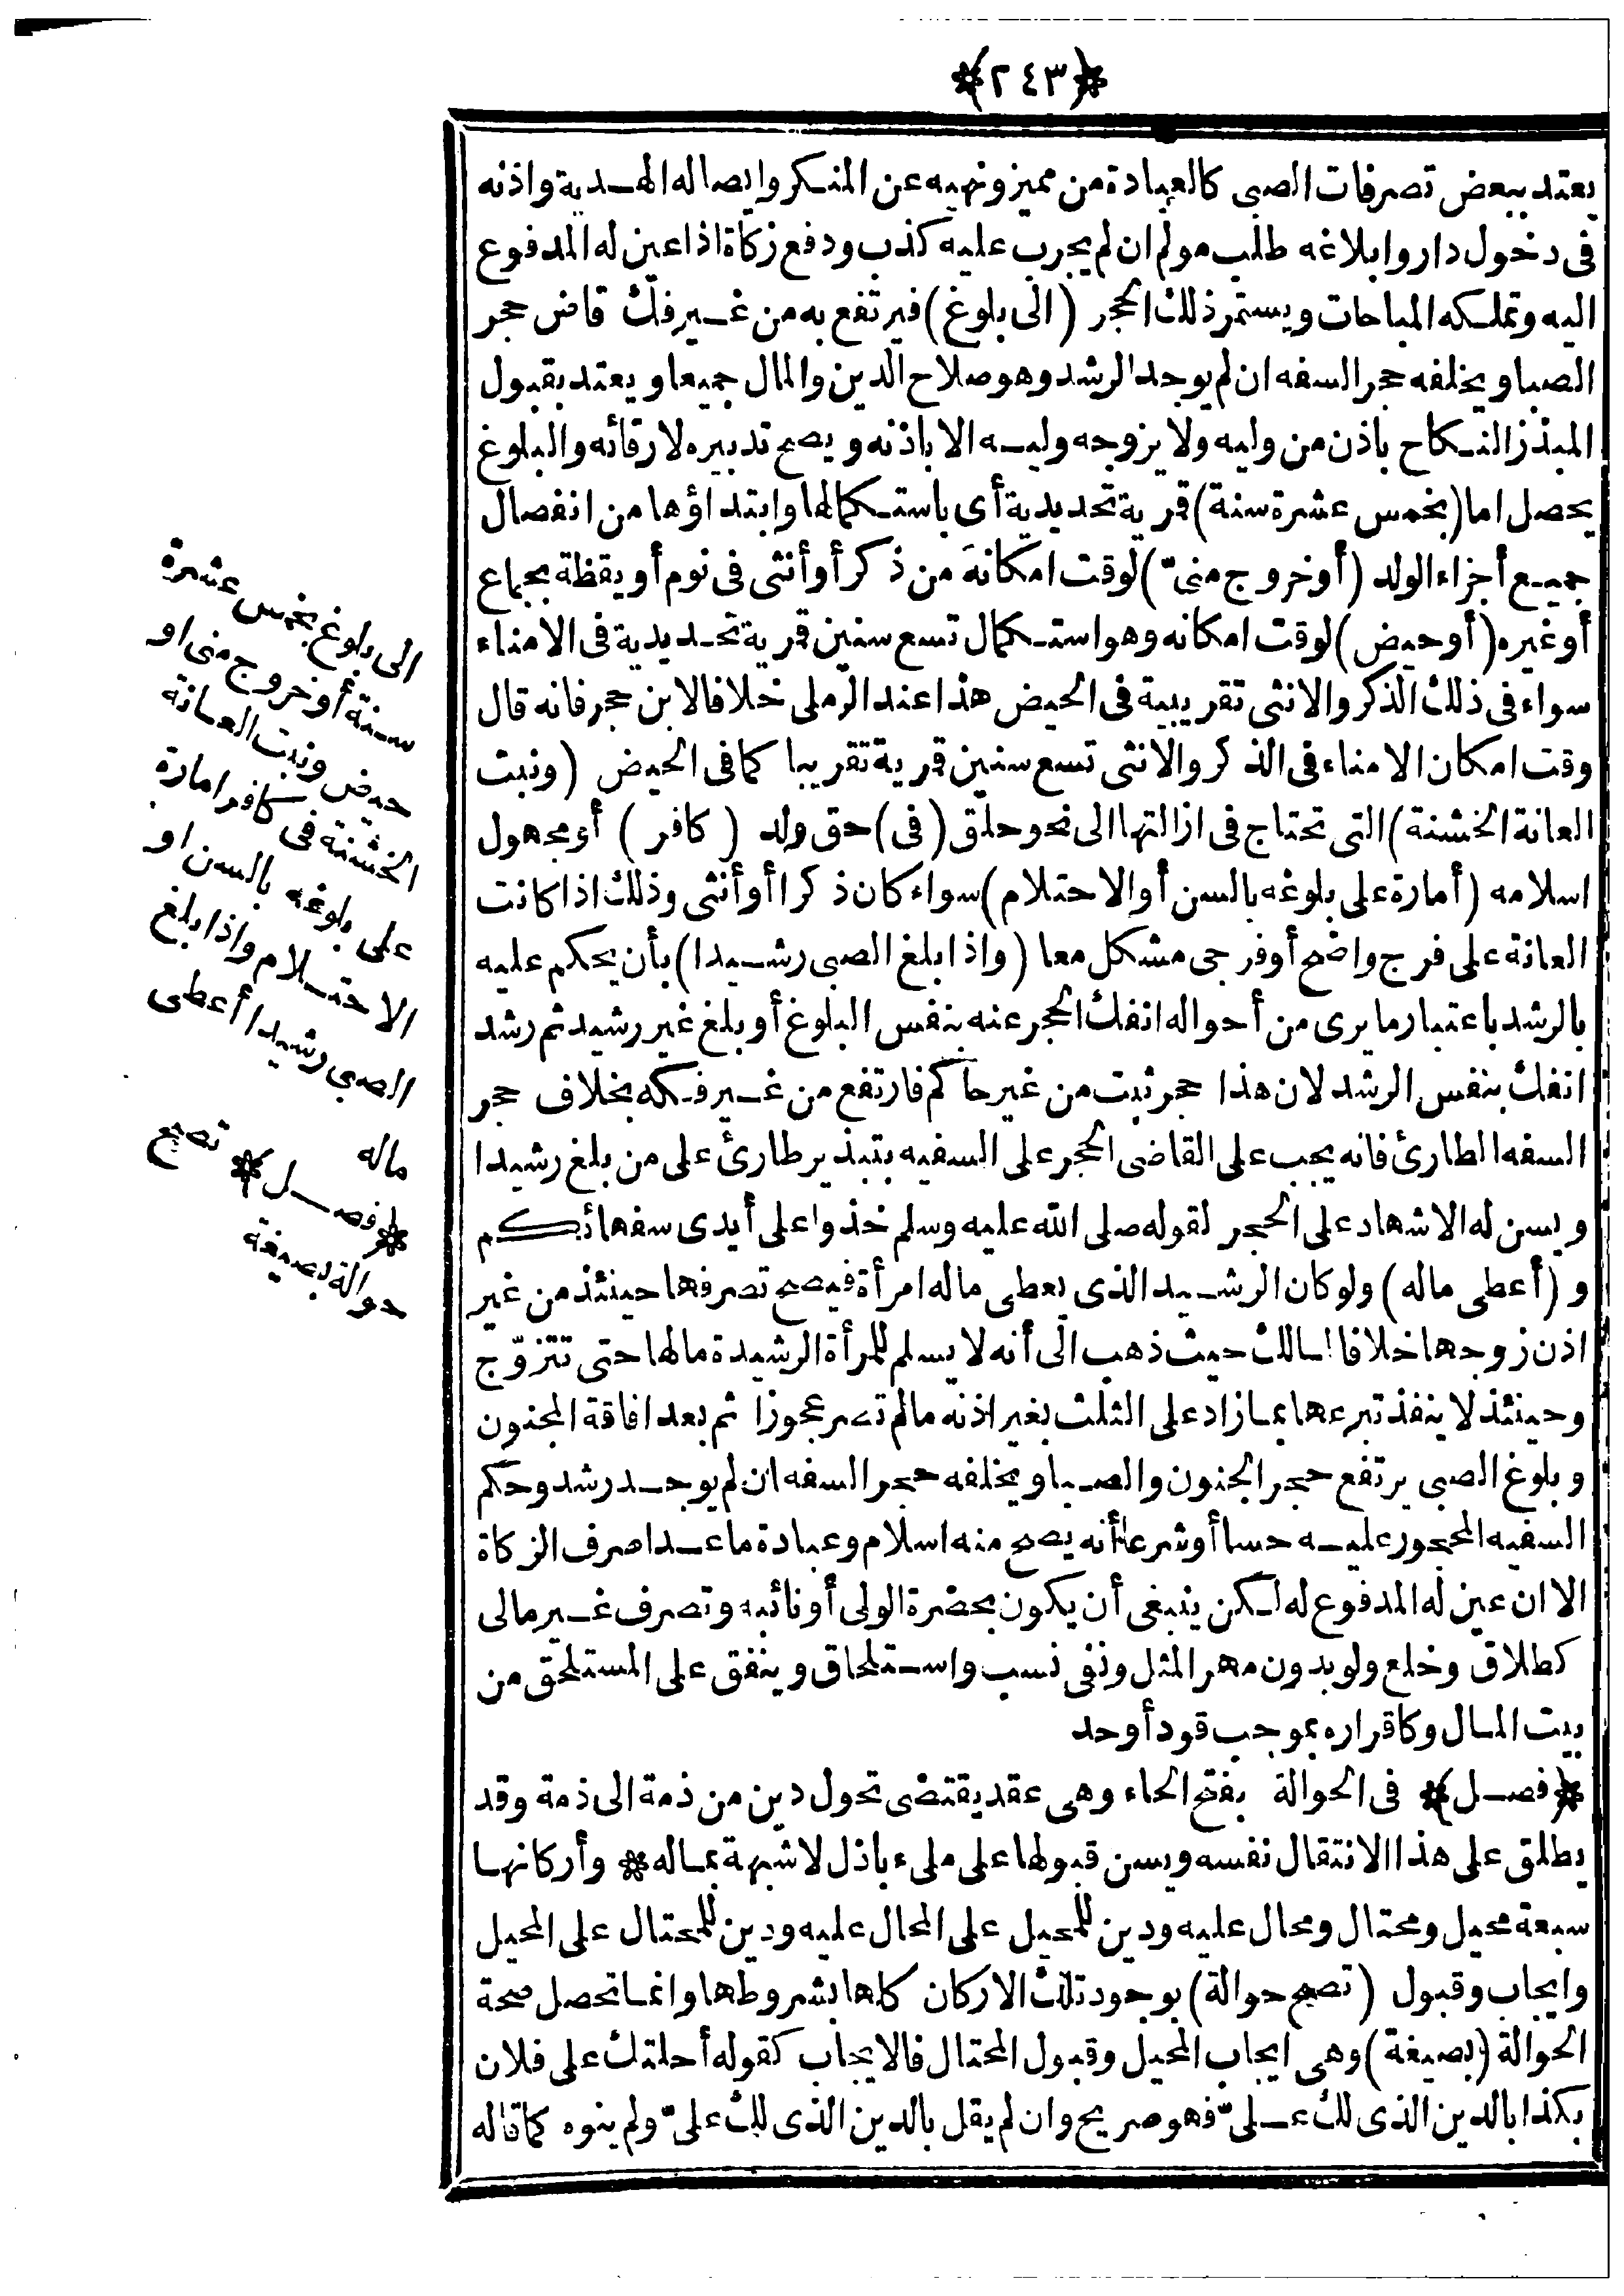 ﴿٢٤٣﴾
يعتد ببعض تصرفات الصبى كالعبادة من مميز ونهيه عن المنكر وايصاله الهدية واذنه
فى دخول دار وابلاغه طلب مولم ان لم يجرب عليه كذب ودفع زكاة اذا عين له المدفوع
اليه وتملكه المباحات ويستمر ذلك الحجر (الى بلوغ) فيرتفع به من غير فك قاض حجر
الصبا ويخلفه حجر السفه ان لم يوجد الرشد وهو صلاح الدين والمال جميعا ويعتد بقبول
المبذر النكاح باذن من وليه ولا يزوجه وليه الا باذنه ويصح تدبيره لارقائه والبلوغ
يحصل اما (بخمس عشرة سنة) قمرية تحديدية أى باستكمالها وابتداؤها من انفصال
جميع أجزاء الولد (أو خروج منىّ) لوقت امكانه من ذكر أو أنثى فى نوم أو يقظة بجماع
أو غيره (أو حيض) لوقت امكانه وهو استكمال تسع سنين قمرية تحديدية فى الامناء
سواء فى ذلك الذكر والانثى تقريبية فى الحيض هذا عند الرملى خلافا لابن حجر فانه قال
وقت امكان الامناء فى الذكر والانثى تسع سنين قمرية تقريبا كما فى الحيض (ونبت
العانة الخشنة) التى تحتاج فى ازالتها الى نحو حلق (فى) حق ولد (كافر) أو مجهول
اسلامه (أمارة على بلوغه بالسن أو الاحتلام) سواء كان ذكرا أو أنثى وذلك اذا كانت
العانة على فرج واضح أو فرجى مشكل معا (واذا بلغ الصبى رشيدا) بأن يحكم عليه
بالرشد باعتبار ما يرى من أحواله انفك الحجر عنه بنفس البلوغ أو بلغ غير رشيد ثم رشد
انفك بنفس الرشد لان هذا حجر ثبت من غير حاكم فارتفع من غير فكه بخلاف حجر
السفه الطارئ فانه يجب على القاضى الحجر على السفيه بتبذير طارئ على من بلغ رشيدا
ويسن له الاشهاد على الحجر لقوله صلى الله عليه وسلم خذوا على أيدى سفهائكم
و (أعطى ماله) ولو كان الرشيد الذى يعطى ماله امرأة فيصح تصرفها حينئذ من غير
اذن زوجها خلافا لمالك حيث ذهب الى أنه لا يسلم للمرأة الرشيدة مالها حتى تتزوّج
وحينئذ لا ينفذ تبرعها بما زاد على الثلث بغير اذنه ما لم تصر عجوزا ثم بعد افاقة المجنون
وبلوغ الصبى يرتفع حجر الجنون والصبا ويخلفه حجر السفه ان لم يوجد رشد وحكم
السفيه المحجور عليه حسا أو شرعا أنه يصح منه اسلام وعبادة ما عدا صرف الزكاة
الا ان عين له المدفوع له لكن ينبغى أن يكون بحضرة الولى أو نائبه وتصرف غير مالى
كطلاق وخلع ولو بدون مهر المثل ونفى نسب واستلحاق وينفق على المستلحق من
بيت المال وكاقراره بموجب قود أو حد
﴿فصل﴾ فى الحوالة بفتح الحاء وهى عقد يقتضى تحول دين من ذمة الى ذمة وقد
يطلق على هذا الانتقال نفسه ويسن قبولها على ملىء باذل لا شبهة بماله * وأركانها
سبعة محيل ومحتال ومحال عليه ودين للمحيل على المحال عليه ودين للمحتال على المحيل
وايجاب وقبول (تصح حوالة) بوجود تلك الاركان كلها بشروطها وانما تحصل صحة
الحوالة (بصيغة) وهى ايجاب المحيل وقبول المحتال فالايجاب كقوله أحلتك على فلان
بكذا بالدين الذى لك علىّ فهو صريح وان لم يقل بالدين الذى لك علىّ ولم ينوه كما قاله
الى بلوغ بخمس عشرة
سنة أو خروج منى او
حيض ونبت العانة
الخشنة فى كافر امارة
على بلوغه بالسن او
الاحتلام واذا بلغ
الصبى رشيدا أعطى
ماله
﴿فصل﴾ تصح
حوالة بصيغة